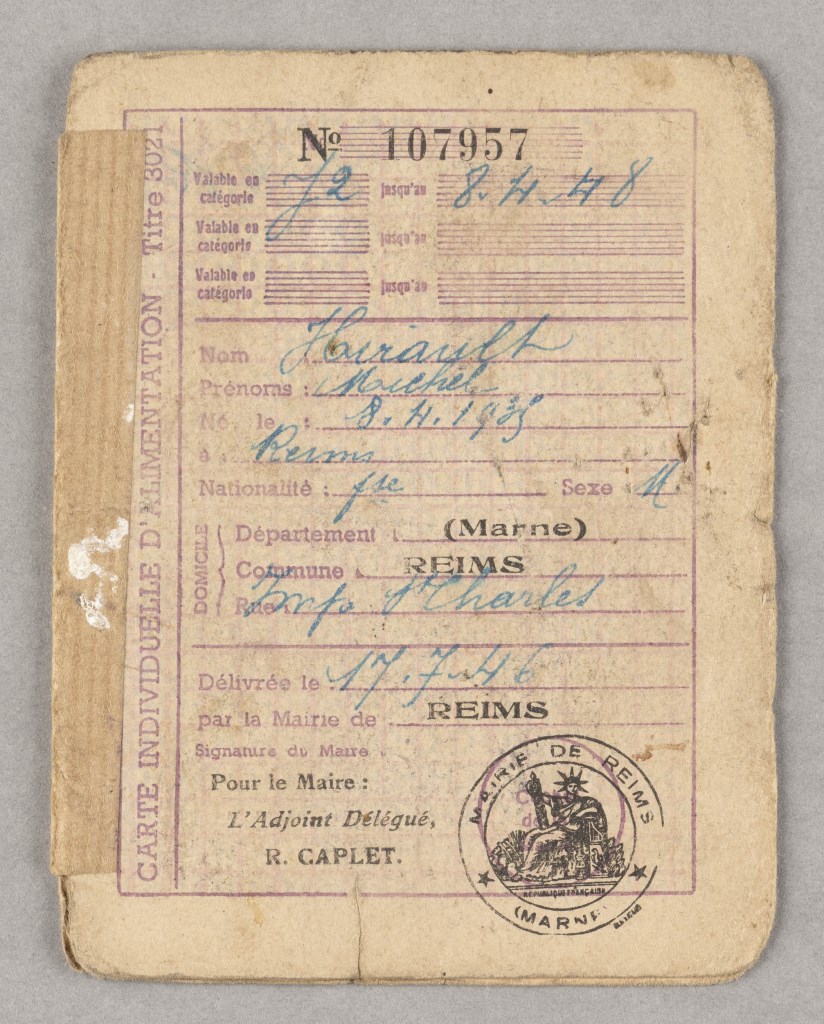 CARTE INDIVIDUELLE D'ALIMENTATION - Titre 3021
Nº 107957
Valable en catégorie J2 jusqu'au 8.4.48
Valable en catégorie jusqu'au
Valable en catégorie jusqu'au
Nom Hérault
Prénoms : Michel
Né le : 8.4.1935
à Reims
Nationalité : fse Sexe M
DOMICILE
Département : (Marne)
Commune : REIMS
Rue : Imp. St Charles
Délivrée le : 17.7.46
par la Mairie de REIMS
Signature du Maire
Pour le Maire :
L'Adjoint Délégué,
R. CAPLET.
MAIRIE DE REIMS
RÉPUBLIQUE FRANÇAISE
(MARNE)